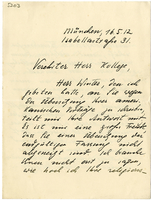 München, 16.5.12
Isabellastraße 31.
Verehrter Herr Kollege.
Herr Winter, den ich
gebeten hatte, an Sie wegen
der Übersetzung Ihrer
Vorträge zu
teilt mir Ihre Antwort mit.
Es ist mir eine große Freude,
daß Sie einer Übersetzung der
Fassung nicht
abgeneigt sind und ich
Ihnen nicht zu sagen,
wie hoch ich Ihre religions-